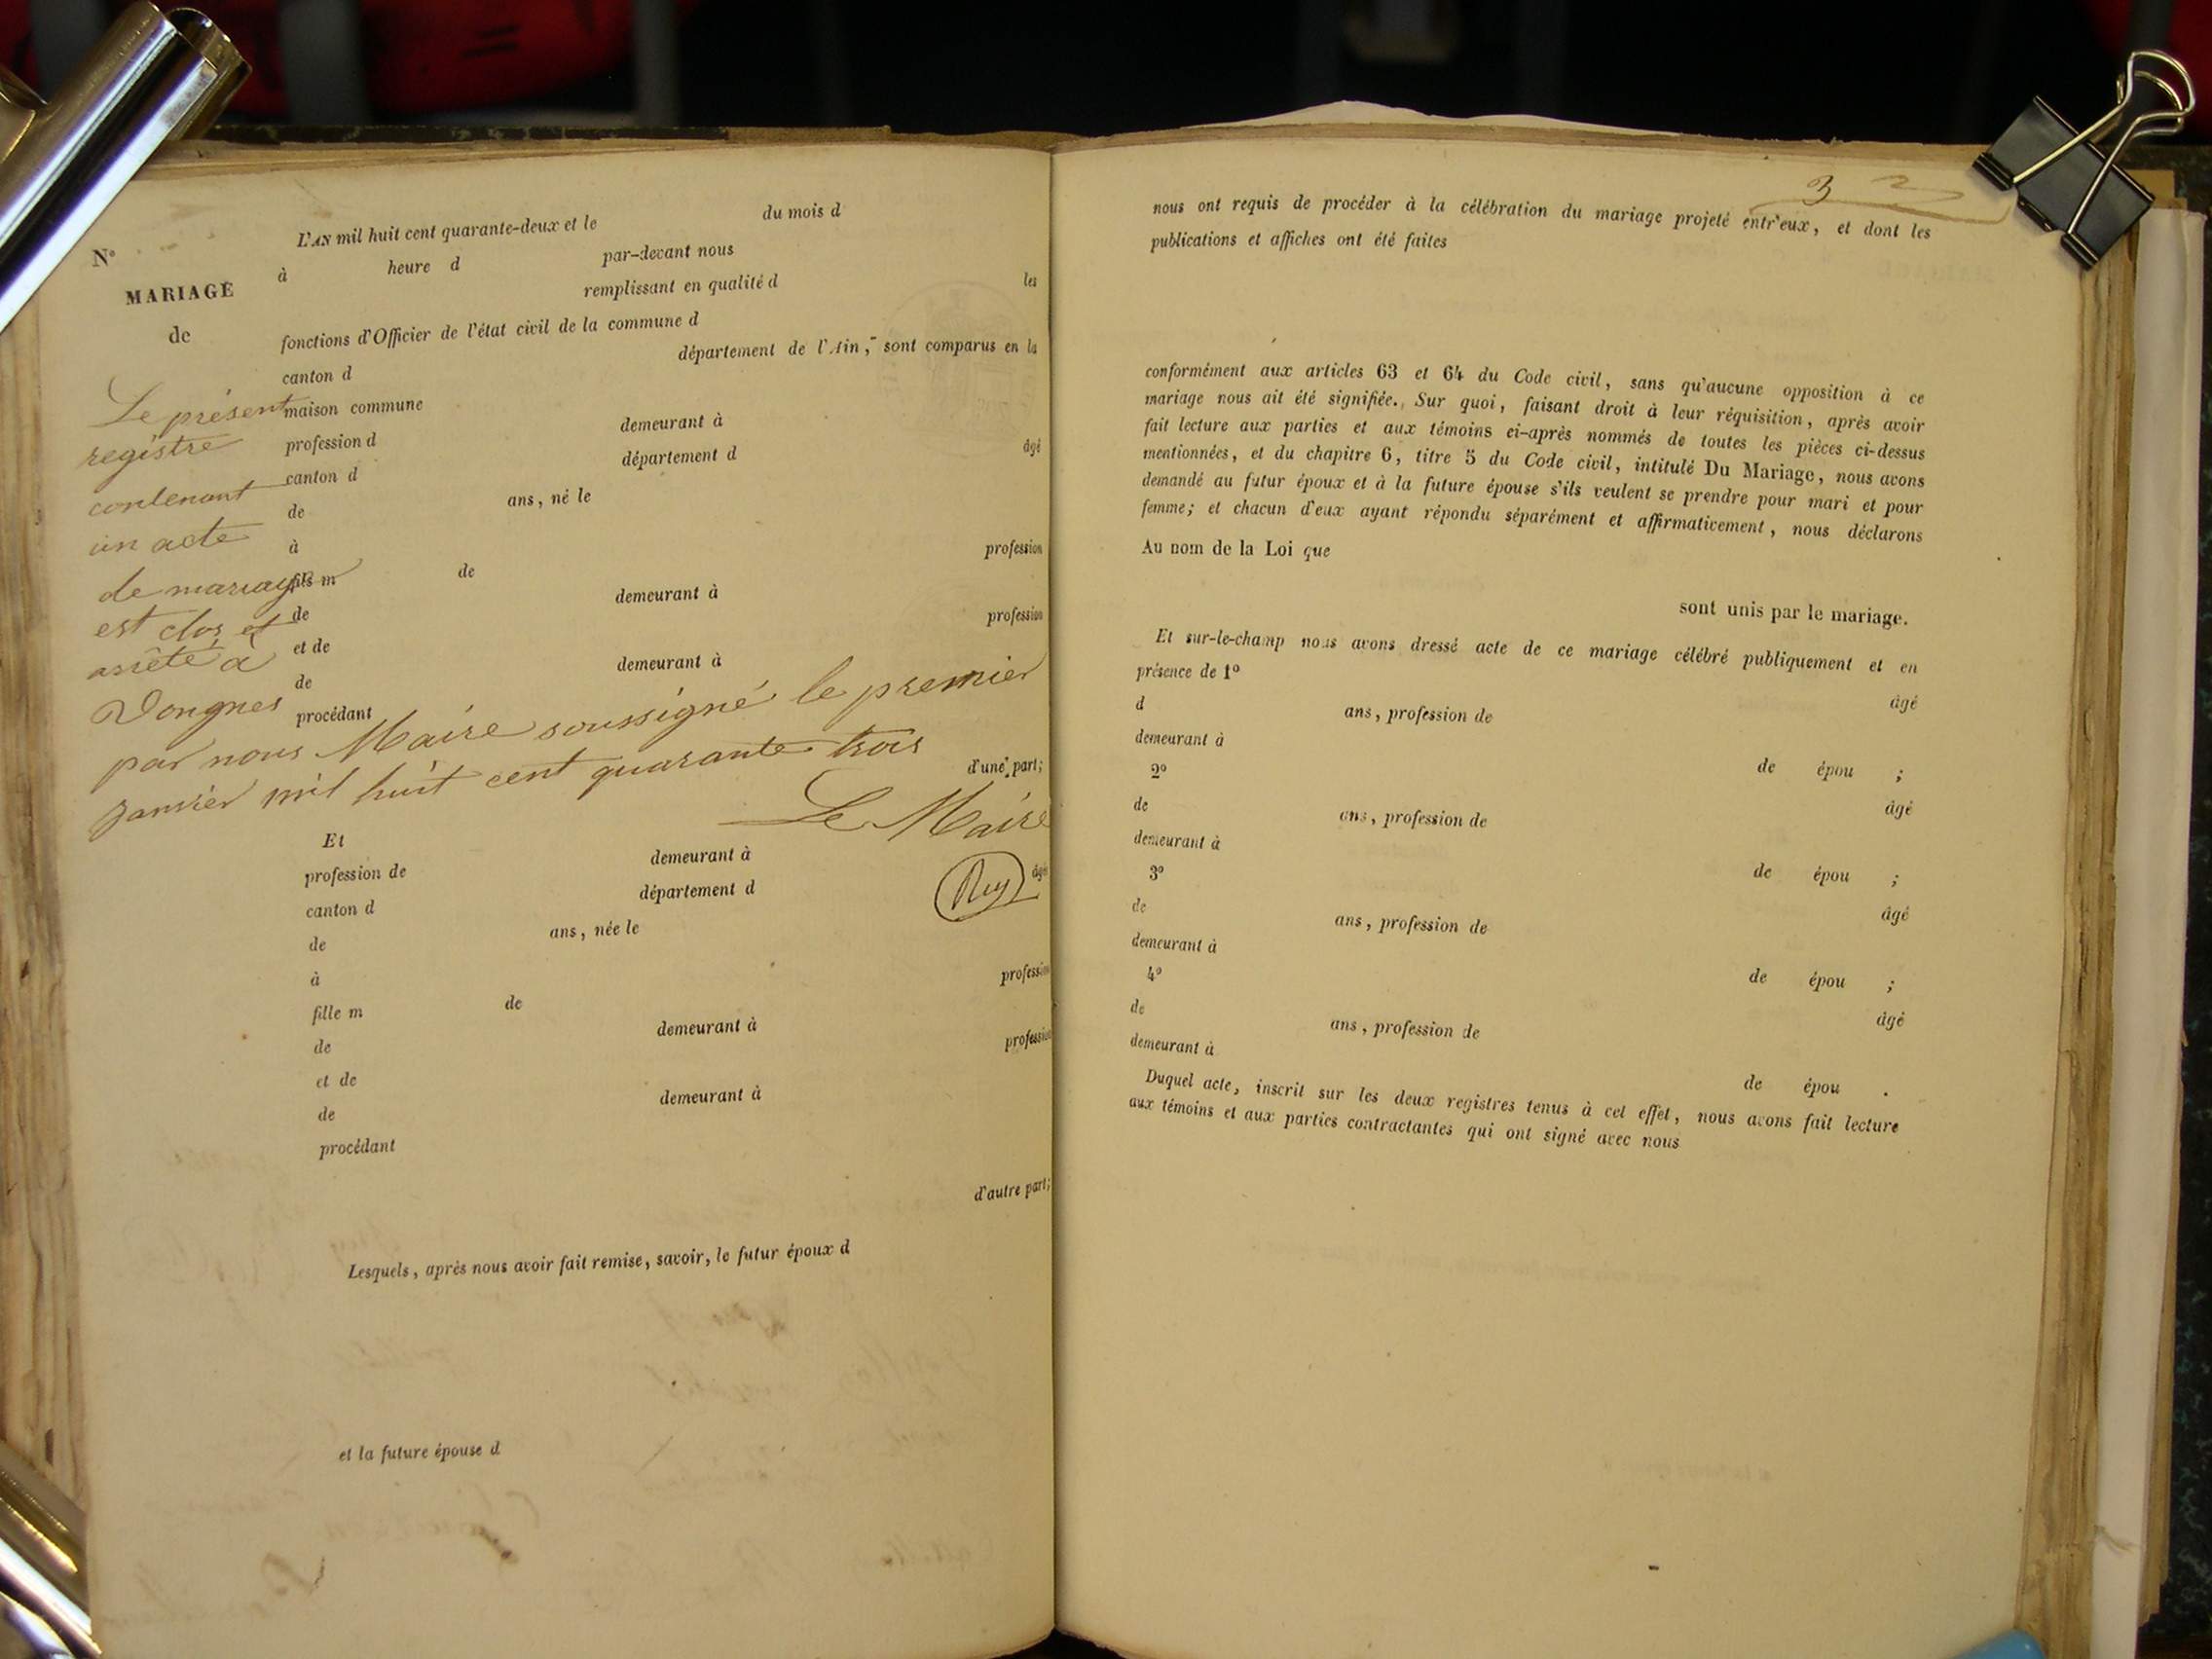 L'AN mil huit cent quarante-deux et le du mois d
N°
à heure d par-devant nous
MARIAGE
remplissant en qualité d les
de
fonctions d'Officier de l'état civil de la commune d
canton d département de l'Ain, sont comparus en la
Le présent
maison commune
registre
profession d demeurant à
contenant
canton d département d âgé
un acte
de ans, né le
à
de mariage
fils m de profession
est clos et
de demeurant à
arrêté à
et de profession
Vongnes
de demeurant à
procédant
par nous Maire soussigné le premier
janvier mil huit cent quarante trois
d'une part;
Le Maire
Et
profession de demeurant à
canton d département d âgé
Rey
de ans, née le
à
fille m de profession
de demeurant à
et de profession
de demeurant à
procédant
d'autre part;
Lesquels, après nous avoir fait remise, savoir, le futur époux d
et la future épouse d
3
nous ont requis de procéder à la célébration du mariage projeté entr'eux, et dont les
publications et affiches ont été faites
conformément aux articles 63 et 64 du Code civil, sans qu'aucune opposition à ce
mariage nous ait été signifiée. Sur quoi, faisant droit à leur réquisition, après avoir
fait lecture aux parties et aux témoins ci-après nommés de toutes les pièces ci-dessus
mentionnées, et du chapitre 6, titre 5 du Code civil, intitulé Du Mariage, nous avons
demandé au futur époux et à la future épouse s'ils veulent se prendre pour mari et pour
femme; et chacun d'eux ayant répondu séparément et affirmativement, nous déclarons
Au nom de la Loi que
sont unis par le mariage.
Et sur-le-champ nous avons dressé acte de ce mariage célébré publiquement et en
présence de 1°
d ans, profession de âgé
demeurant à
2° de épou ;
de ans, profession de âgé
demeurant à
3° de épou ;
de ans, profession de âgé
demeurant à
4° de épou ;
de ans, profession de âgé
demeurant à
de épou .
Duquel acte, inscrit sur les deux registres tenus à cel effet, nous avons fait lecture
aux témoins et aux parties contractantes qui ont signé avec nous